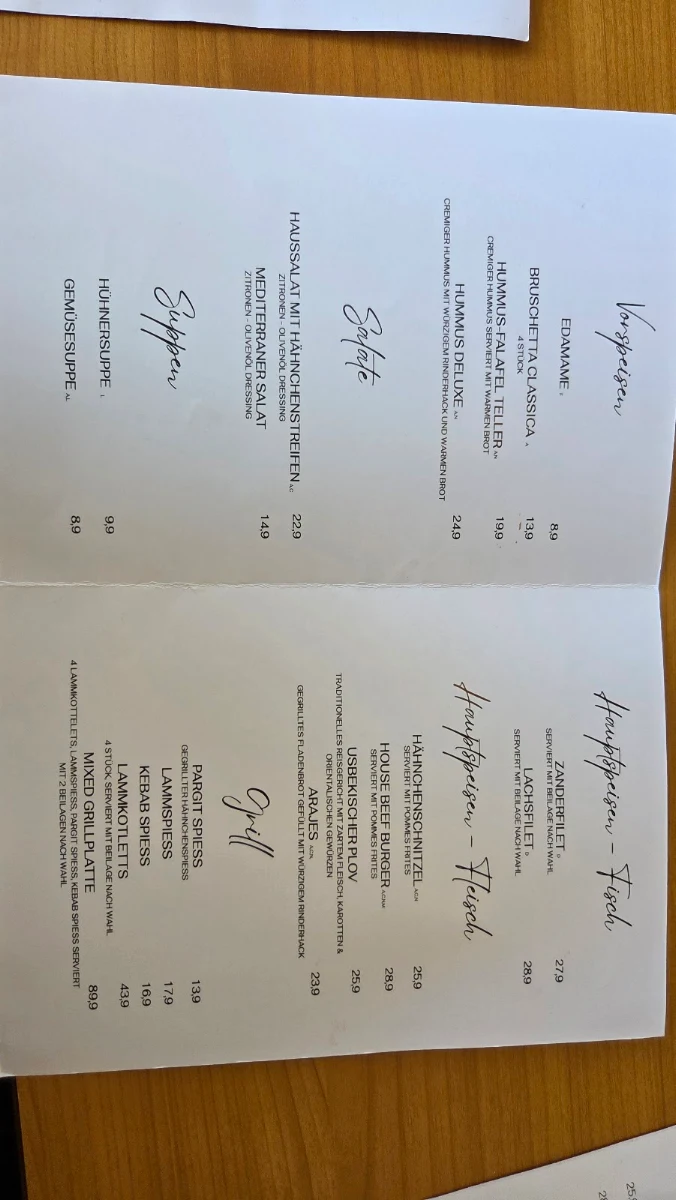 Vorspeisen
EDAMAME
8,9
BRUSCHETTA CLASSICA A
4 STÜCK
13,9
HUMMUS-FALAFEL TELLER A,N
CREMIGER HUMMUS SERVIERT MIT WARMEN BROT
19,9
HUMMUS DELUXE A,N
CREMIGER HUMMUS MIT WÜRZIGEM RINDERHACK UND WARMEN BROT
24,9
Salate
HAUSSALAT MIT HÄHNCHENSTREIFEN A,C
ZITRONEN - OLIVENÖL DRESSING
22,9
MEDITERRANER SALAT
ZITRONEN - OLIVENÖL DRESSING
14,9
Suppen
HÜHNERSUPPE L
9,9
GEMÜSESUPPE A,L
8,9
Hauptspeisen - Fisch
ZANDERFILET D
SERVIERT MIT BEILAGE NACH WAHL
27,9
LACHSFILET D
SERVIERT MIT BEILAGE NACH WAHL
28,9
Hauptspeisen - Fleisch
HÄHNCHENSCHNITZEL
SERVIERT MIT POMMES FRITES
25,9
HOUSE BEEF BURGER
SERVIERT MIT POMMES FRITES
28,9
USBEKISCHER PLOV
TRADITIONELLES REISGERICHT MIT ZARTEM FLEISCH, KAROTTEN &
ORIENTALISCHEN GEWÜRZEN
25,9
ARAJES
GEGRILLTES FLADENBROT GEFÜLLT MIT WÜRZIGEM RINDERHACK
23,9
Grill
PARGIT SPIESS
GEGRILLTER HÄHNCHENSPIESS
13,9
LAMMSPIESS
17,9
KEBAB SPIESS
16,9
LAMMKOTLETTS
4 STÜCK, SERVIERT MIT BEILAGE NACH WAHL
43,9
MIXED GRILLPLATTE
4 LAMMKOTTELETS, LAMMSPIESS, PARGIT SPIESS, KEBAB SPIESS SERVIERT
MIT 2 BEILAGEN NACH WAHL
89,9